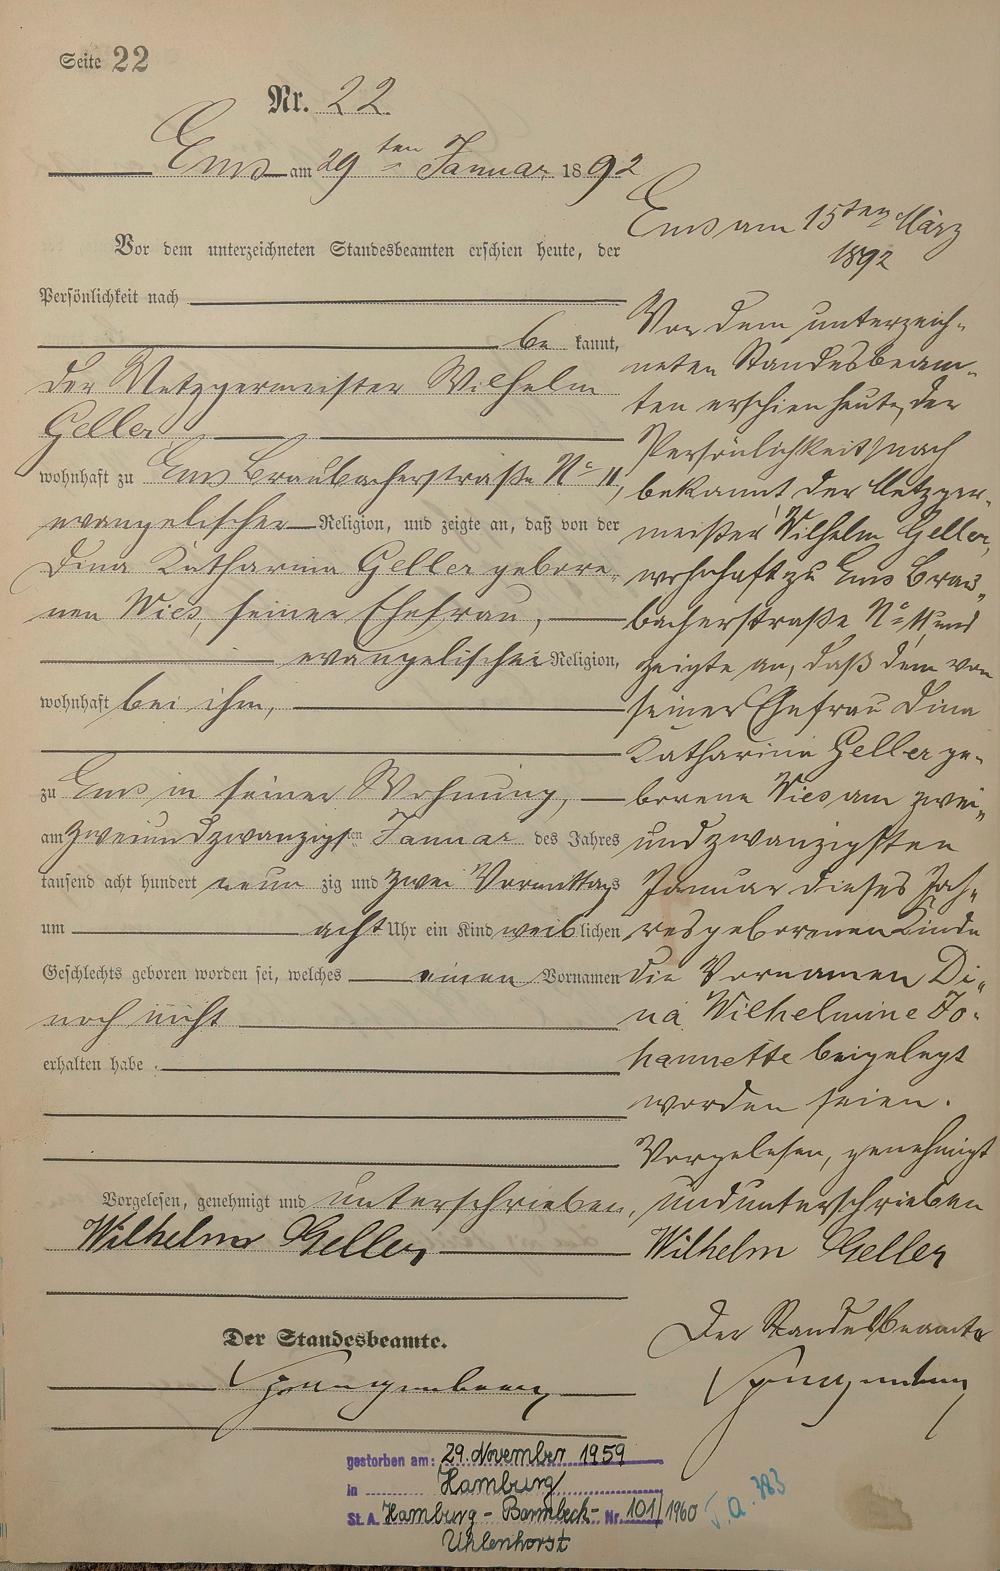 Seite 22
Nr. 22
Ems am 29ten Januar 1892
Vor dem unterzeichneten Standesbeamten erschien heute, der
Persönlichkeit nach
be kannt,
der Metzgermeister Wilhelm
Geller
wohnhaft zu Ems Braubacherstraße No 11,
evangelischer Religion, und zeigte an, daß von der
Dina Katharina Geller gebore-
nen Wies, seiner Ehefrau,
evangelischer Religion,
wohnhaft bei ihm,
zu Ems in seiner Wohnung,
am zweiundzwanzigsten Januar des Jahres
tausend acht hundert neun zig und zwei Vormittags
um acht Uhr ein Kind weiblichen
Geschlechts geboren worden sei, welches einen Vornamen
noch nicht
erhalten habe.
Vorgelesen, genehmigt und unterschrieben,
Wilhelm Geller
Der Standesbeamte.
Spangenberg
Ems am 15ten März
1892
Vor dem unterzeich-
neten Standesbeam-
ten erschien heute, der
Persönlichkeit nach
bekannt der Metzger-
meister Wilhelm Geller,
wohnhaft zu Ems Brau-
bacherstraße No 11, und
zeigte an, daß dem von
seiner Ehefrau Dina
Katharina Geller ge-
borene Wies am zwei-
undzwanzigsten
Januar dieses Jah-
res geborenen Kinde
die Vornamen Di-
na Wilhelmine Jo-
hannette beigelegt
worden seien.
Vorgelesen, genehmigt
und unterschrieben
Wilhelm Geller
Der Standesbeamte
Spangenberg
gestorben am: 29. November 1959
in Hamburg
St. A. Hamburg-Barmbeck- Nr. 101/1960
Uhlenhorst
J.A. 383